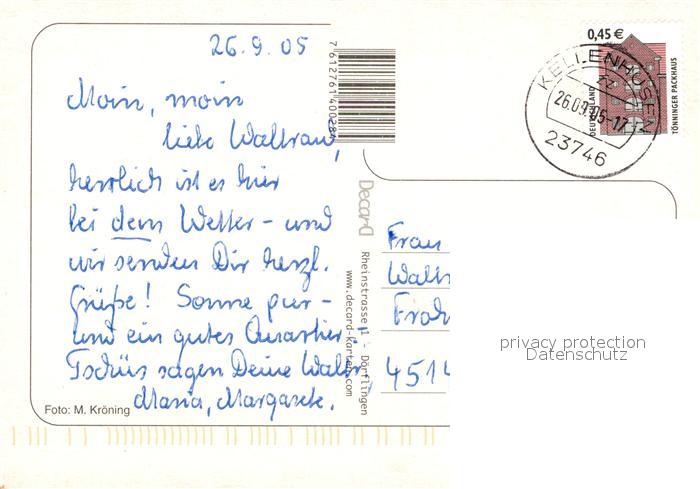 26.9.05
Moin, moin
liebe Waltraud,
herrlich ist es hier
bei dem Wetter - und
wir senden Dir herzl.
Grüße! Sonne pur -
und ein gutes Quartier.
Tschüs sagen Deine
Maria, Margarete.
Foto: M. Kröning
7612761400028
Decard
Rheinstrasse 1 - Dörflingen
www.decard-karten.com
0,45 €
DEUTSCHLAND
TÖNNINGER PACKHAUS
KELLENHUSEN
26.09.05-17
23746
Frau
Walt
4514
privacy protection
Datenschutz